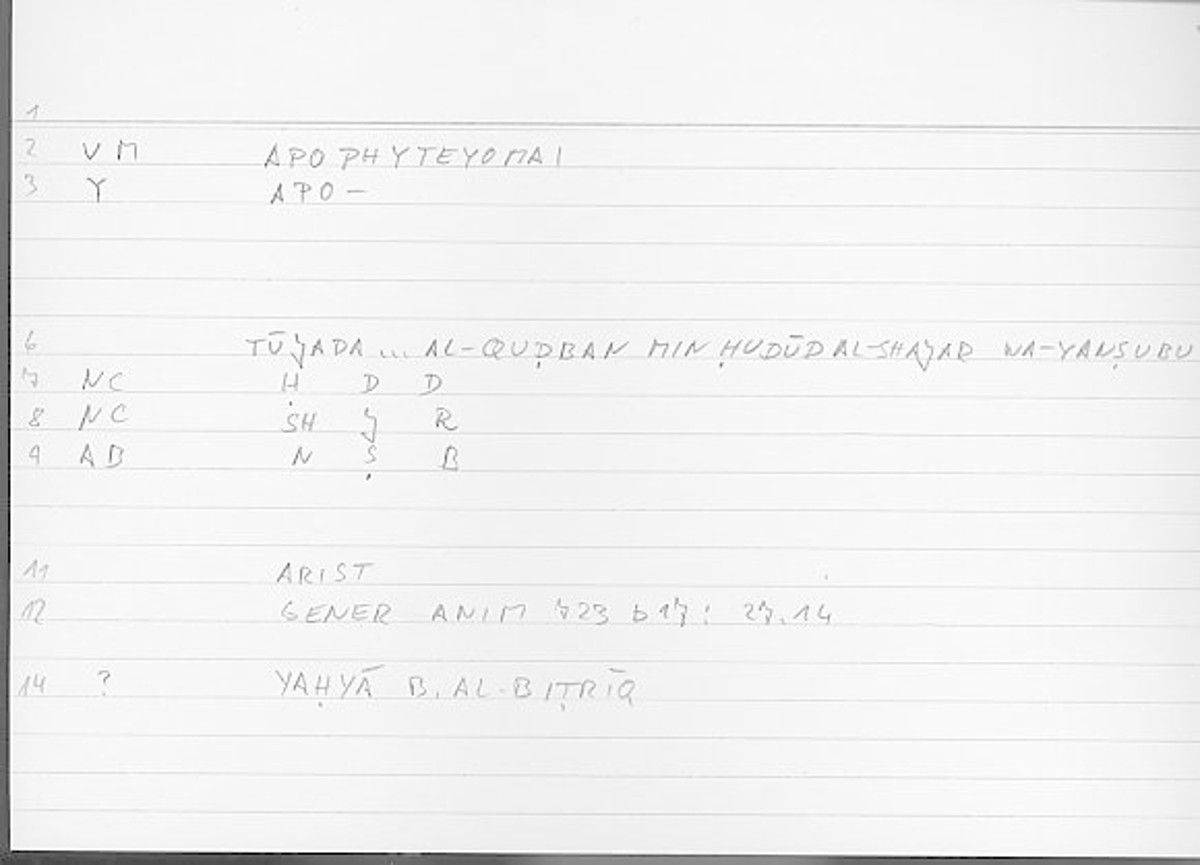 1
2 VM APOPHYTEYOMAI
3 Y APO-
6 TŪJADA ... AL-QUḌBAN MIN ḤUDŪD AL-SHAJAR WA-YANṢUBU
7 NC Ḥ D D
8 NC SH J R
9 AB N Ṣ B
11 ARIST
12 GENER ANIM 723 b 17: 27.14
14 ? YAḤYĀ B. AL-BIṬRĪQ